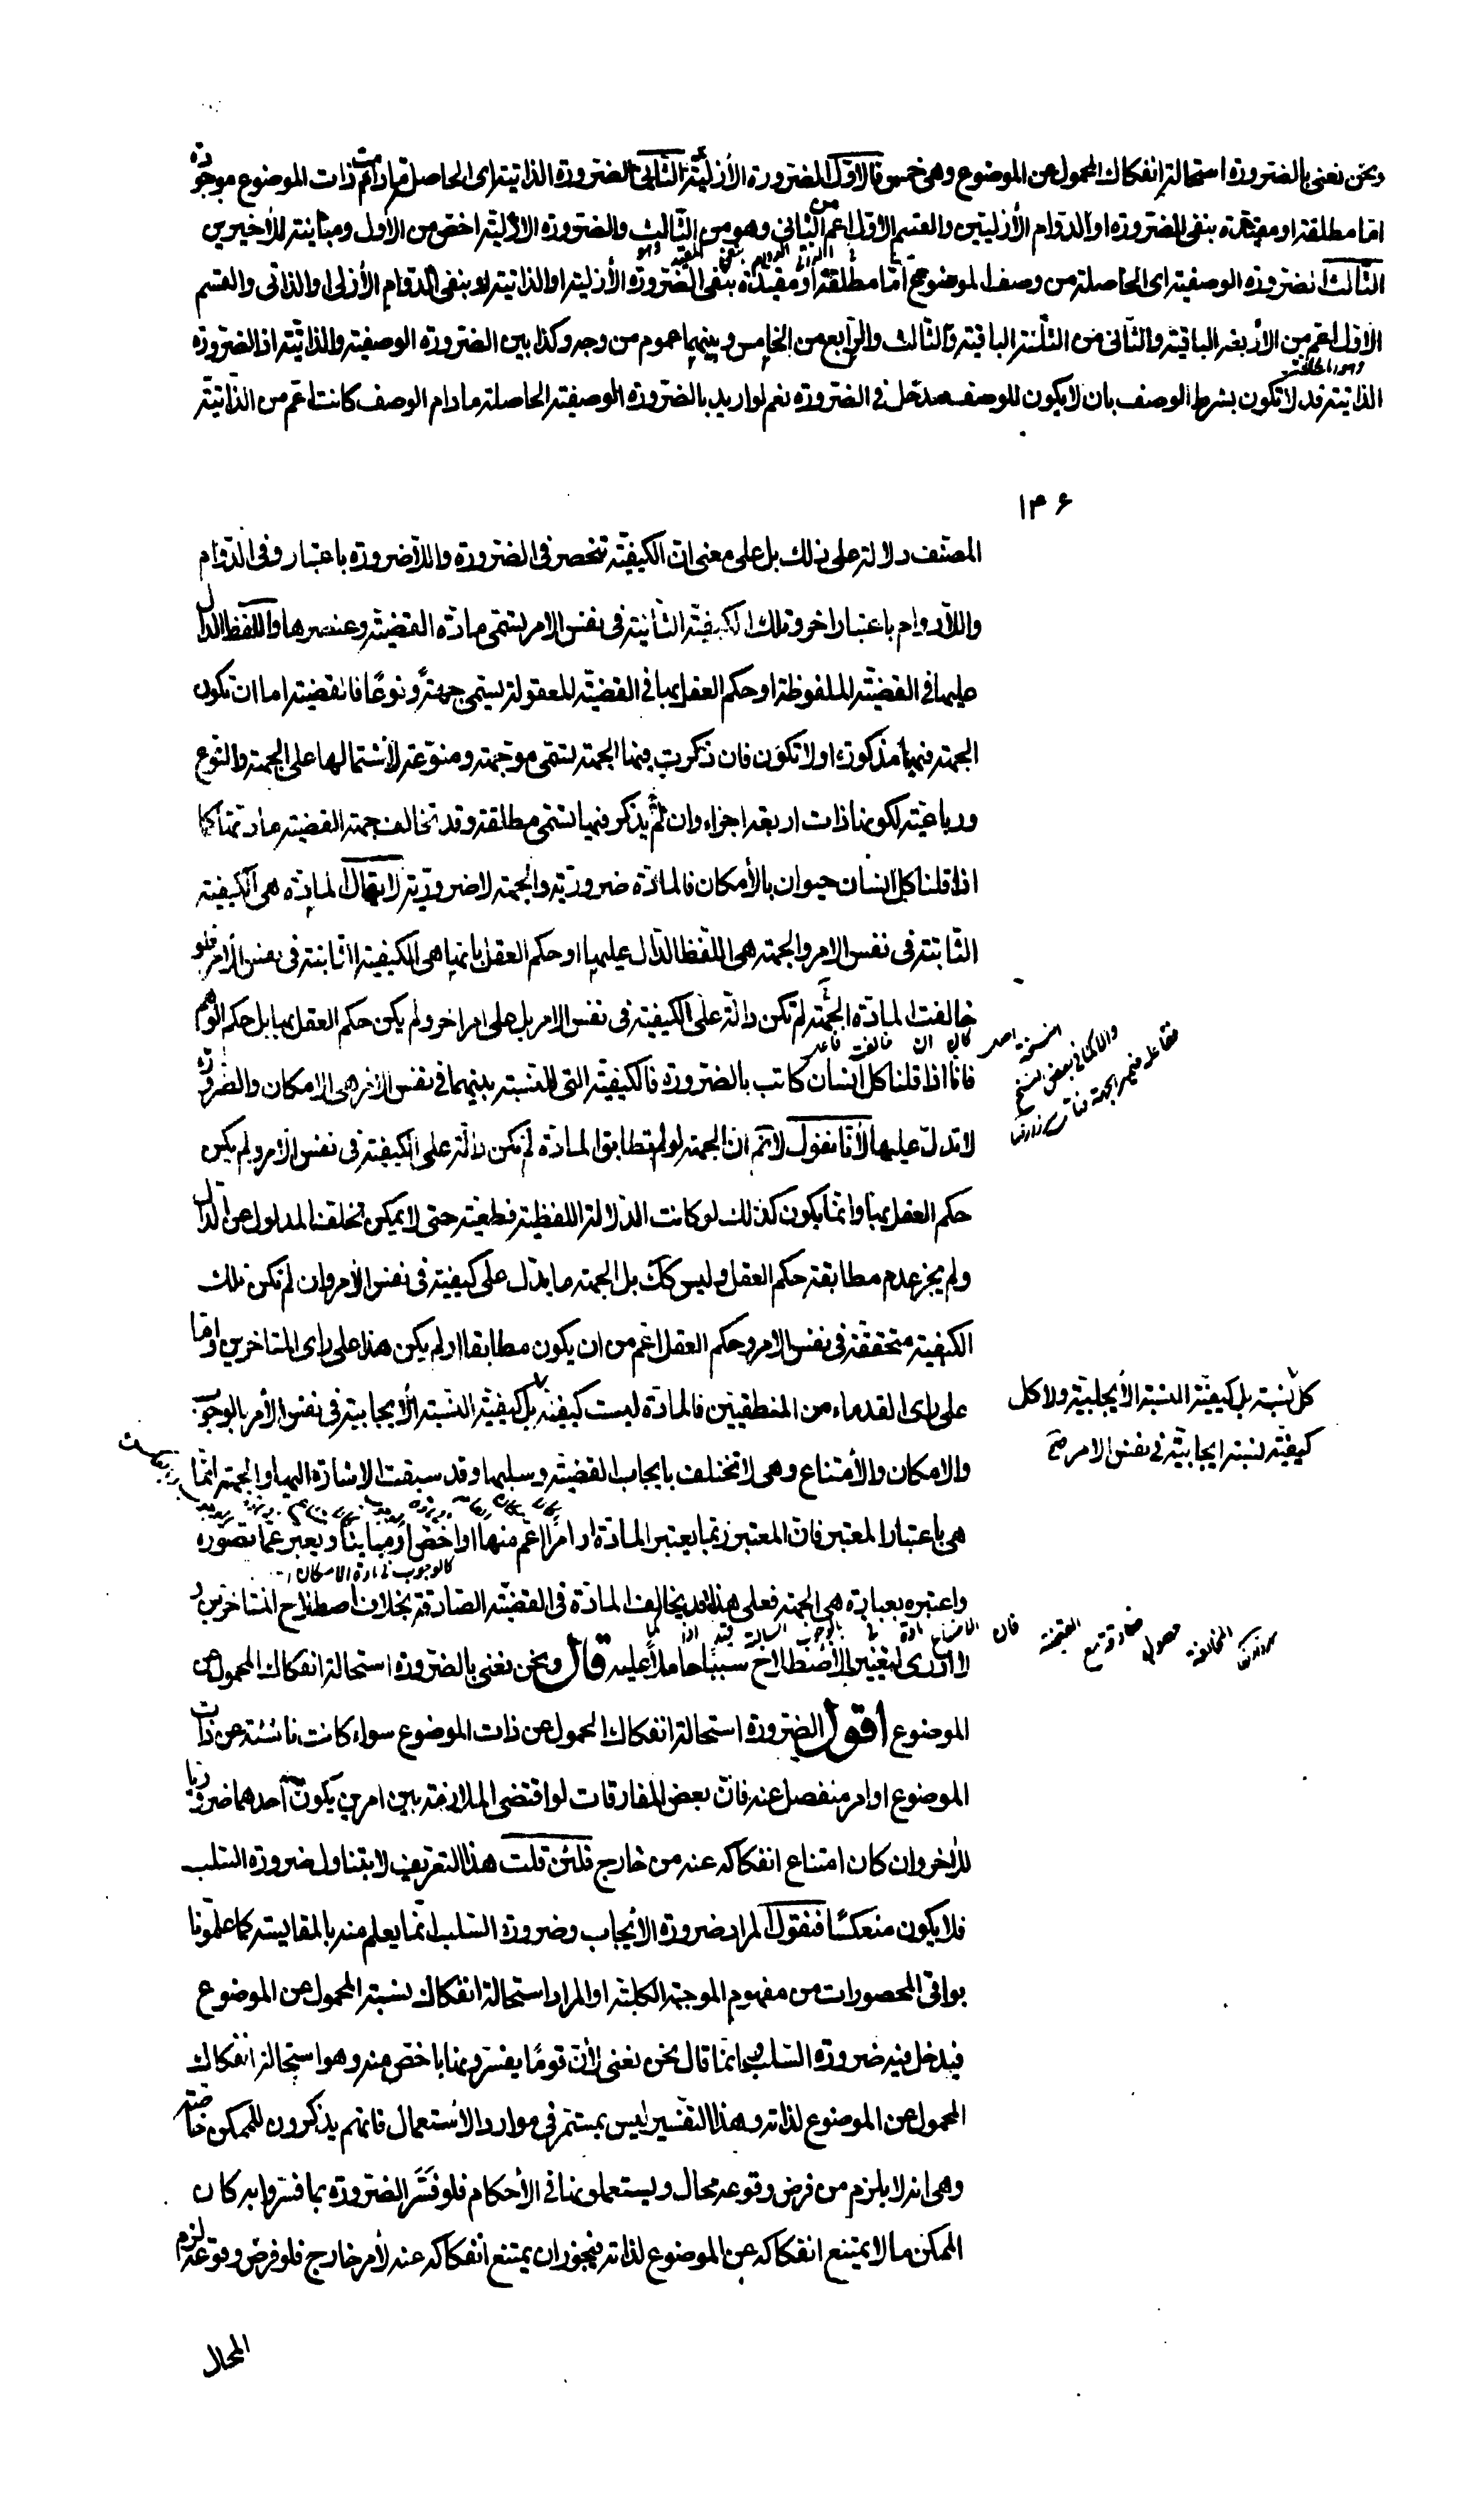 ونحن نعنى بالضرورة استحالة انفكاك المحمول عن الموضوع وهى خمس فالاول الضرورة الأزلية الثانى الضرورة الذاتية اى الحاصلة مادامت ذات الموضوع موجودة
امّا مطلقة او مقيّدة بنفى الضرورة او الدوام الأزليتين والقسم الاوّل اعم من الثانى وهو من الثالث والضرورة الازليّة اخص من الأول ومباينة للأخيرين
الثالث الضرورة الوصفيّة اى الحاصلة من وصف الموضوع امّا مطلقة او مقيدة بنفى الضرورة الأزلية او الذاتية او بنفى الدوام الأزلى او الذاتى والقسم
الاوّل اعم من الأربعة الباقية والثانى من الثلثة الباقية والثالث والرّابع من الخامس وبينهما عموم من وجه وكذا بين الضرورة الوصفية والذاتيّة اذ الضرورة
الذاتيّة قد لا تكون بشرط الوصف بان لا يكون للوصف مدخل فى الضرورة نعم لو اريد بالضرورة الوصفيّة الحاصلة مادام الوصف كانت اعم من الذاتيّة
١٣۶
المصنّف دلالة على ذلك بل على معنى انّ الكيفيّة تنحصر فى الضرورة واللاضرورة باعتبار وفى الدّوام
واللّادوام باعتبار اخر وتلك الكيفيّة الثابتة فى نفس الامر يسمّى مادّة القضيّة وعنصرها واللفظ الدال
عليها فى القضيّة الملفوظة او حكم العقل بها فى القضيّة المعقولة يسمّى جهةً ونوعًا فالقضيّة اما ان تكون
الجهة فيها مذكورة او لا تكون فان ذكرت فيها الجهة يسمّى موجّهة ومنوّعة لأشتمالها على الجهة والنّوع
ورباعيّة لكونها ذات اربعة اجزاء وان لم يذكر فيها يسمّى مطلقة وقد تخالف جهة القضيّة مادّتها كما
اذا قلنا كل انسان حيوان بالأمكان فالمادّة ضروريّة والجهة لاضروريّة لا يقال المادّة هى الكيفيّة
الثّابتة فى نفس الامر والجهة هى اللّفظ الدّال عليها او حكم العقل بانّها هى الكيفيّة الثابتة فى نفس الأمر فلو
خالفت المادّة الجهة لم تكن دالّة على الكيفيّة فى نفس الامر بل على امر اخر ولم يكن حكم العقل بها بل حكم الوهم
فانّا اذا قلنا كل انسان كاتب بالضرورة فالكيفيّة التى للنسبة بينهما فى نفس الامر هى الامكان والضرورة
لا تدلّ عليها لأنّا نقول لا نم ان الجهة لو لم تطابق المادّة لم تكن دالّة على الكيفيّة فى نفس الأمر ولم يكن
حكم العقل بها وانّما يكون كذلك لو كانت الدّلالة اللفظية قطعيّة حتى لا يمكن تخلف المدلول عن الدّال
ولم يجز عدم مطابقة حكم العقل وليس كك بل الجهة ما يدّل على كيفيّة فى نفس الأمر وان لم تكن تلك
الكيفيّة متحققة فى نفس الامر وحكم العقل اعم من ان يكون مطابقا او لم يكن هذا على راى المتاخرين وامّا
على راى القدماء من المنطقيين فالمادّة ليست كيفيّة بل كيفيّة النسبة الأيجابية فى نفس الأمر بالوجوب
كل نسبة بل كيفيّة النسبة الأيجابيّة ولا كل
كيفيّة نسبة ايجابيّة فى نفس الامر صح
والامكان والأمتناع وهى لا تختلف بايجاب القضيّة وسلبها وقد سبقت الاشارة اليها والجهة انّما
هى باعتبار المعتبر فانّ المعتبر ربّما يعتبر المادّة او امرًا اعم منها او اخص او مباينا ويعبر عمّا تصوّره
كالوجوب فى مادة الامكان
واعتبره بعبارة هى الجهة فعلى هذا قد يخالف المادّة فى القضيّة الصّادقة بخلاف اصطلاح المتاخرين و
لا ادرى لتغيير الأصطلاح سببًا حاملًا عليه قال ونحن نعنى بالضرورة استحالة انفكاك المحمول عن
الموضوع اقول الضرورة استحالة انفكاك المحمول عن ذات الموضوع سواء كانت ناشئة عن ذات
الموضوع او امر منفصل عنه فانّ بعض المفارقات لو اقتضى الملازمة بين امرين يكون احدهما ضروريّا
للأخر وان كان امتناع انفكاكه عنه من خارج فلئن قلت هذا التعريف لا يتناول ضرورة السّلب
فلا يكون منعكسًا فنقول المراد ضرورة الأيجاب وضرورة السّلب انّما يعلم منه بالمقايسة كما علمونا
بواقى المحصورات من مفهوم الموجبة الكلية او المراد استحالة انفكاك نسبة المحمول عن الموضوع
فيدخل فيه ضرورة السّلب وانّما قال نحن نعنى لأنّ قومًا يفسّرونها باخصّ منه وهو استحالة انفكاك
المحمول عن الموضوع لذاته وهذا التفسير ليس بمستمرّ فى موارد الأستعمال فانّهم يذكرون للممكن خاصّة
وهى انه لا يلزم من فرض وقوعه محال ويستعملونها فى الأحكام فلو فسّر الضرورة بما فسّروا به كان
الممكن ما لا يمتنع انفكاكه عن الموضوع لذاته فيجوز ان يمتنع انفكاكه عنه لأمر خارج فلو فرض وقوعه لزم
المحال